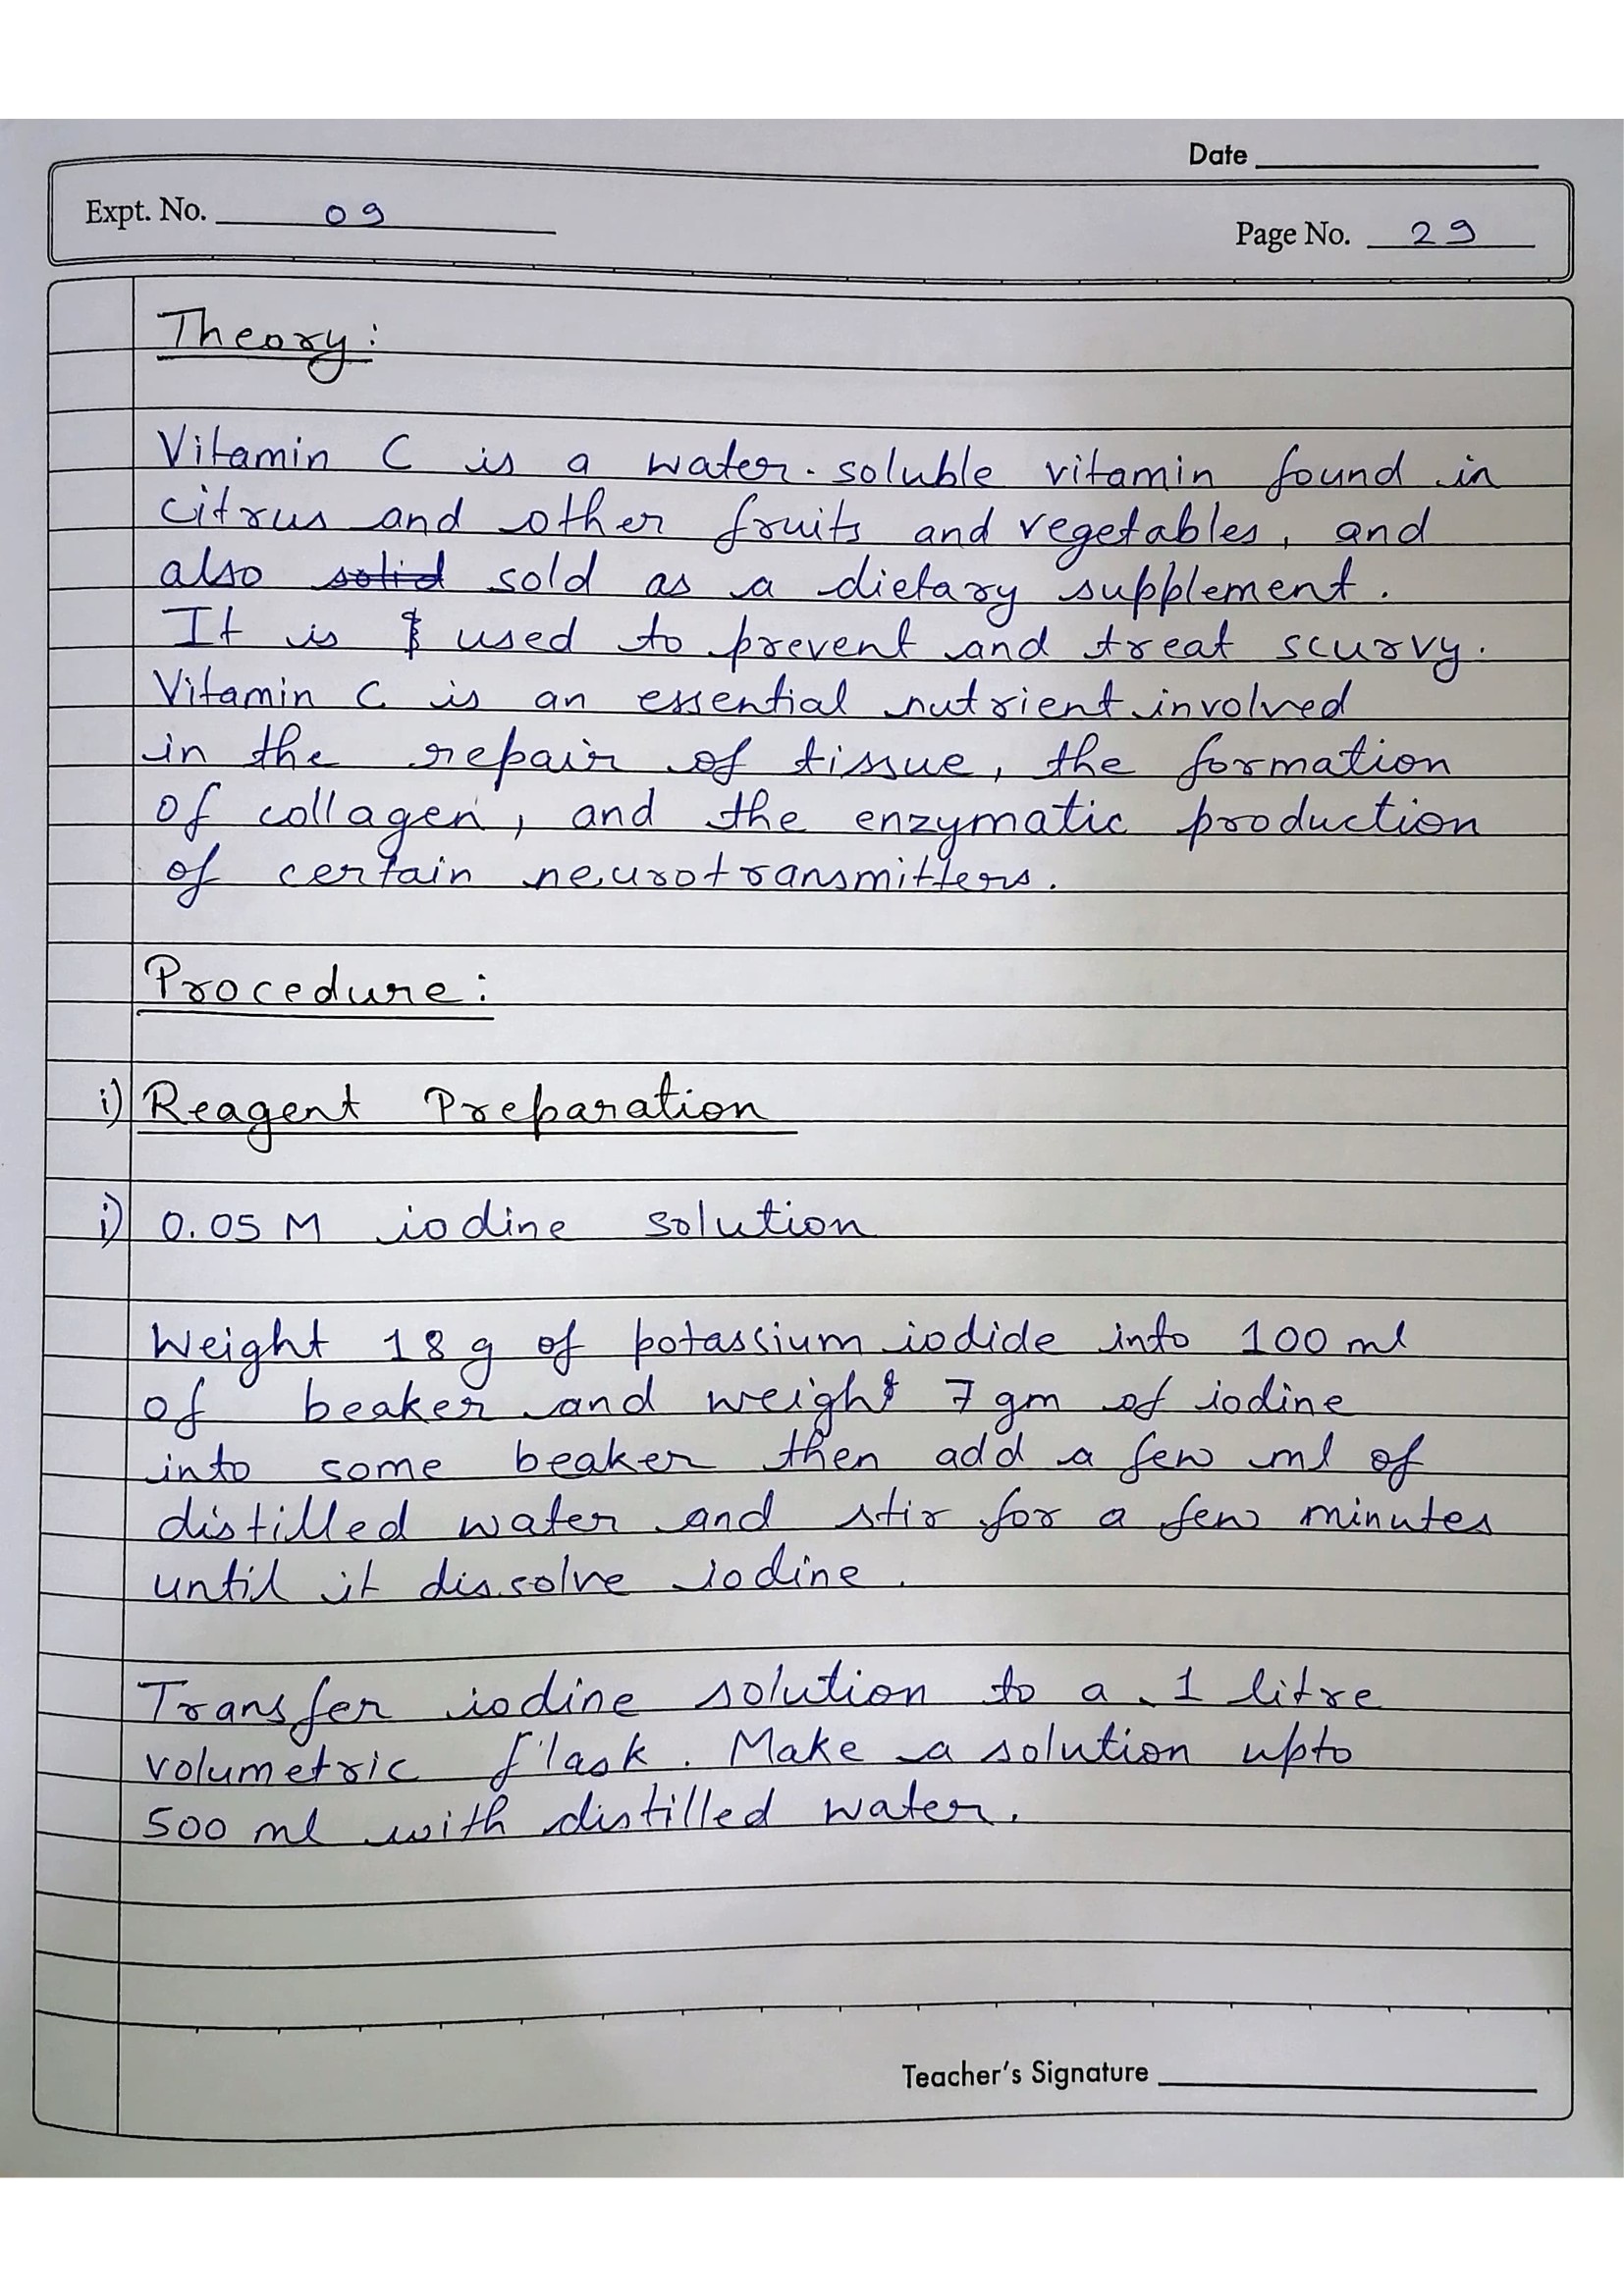 Date
Expt. No. 09
Page No. 29
Theory:
Vitamin C is a water-soluble vitamin found in
citrus and other fruits and vegetables, and
also solid sold as a dietary supplement.
It is used to prevent and treat scurvy.
Vitamin C is an essential nutrient involved
in the repair of tissue, the formation
of collagen, and the enzymatic production
of certain neurotransmitters.
Procedure:
i) Reagent Preparation
i) 0.05 M iodine solution
Weight 18 g of potassium iodide into 100 ml
of beaker and weight 7 gm of iodine
into some beaker then add a few ml of
distilled water and stir for a few minutes
until it dissolve iodine.
Transfer iodine solution to a 1 litre
volumetric flask. Make a solution upto
500 ml with distilled water.
Teacher's Signature